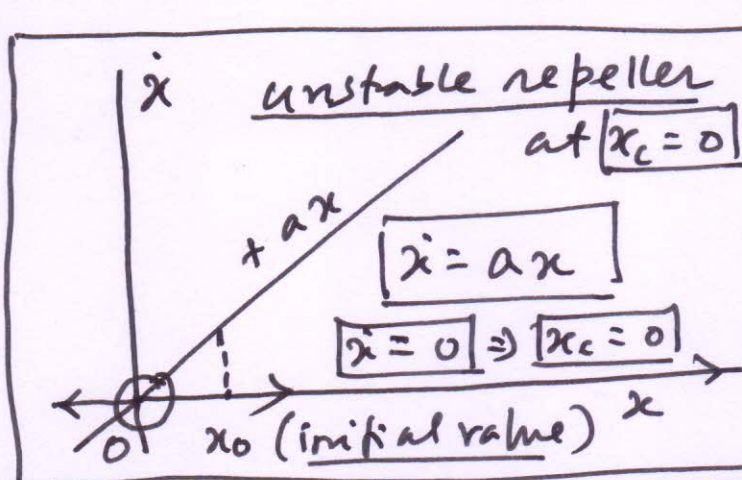 ẋ
unstable repeller
at x_c = 0
+ ax
ẋ = ax
ẋ = 0 ⇒ x_c = 0
0 x₀ (initial value) x